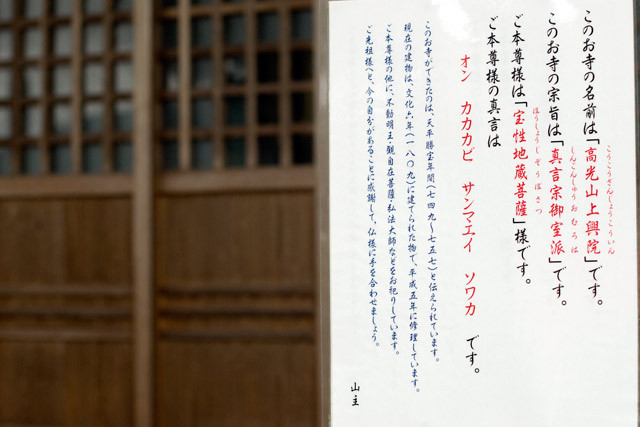 このお寺の名前は「高光山上興院」です。
こうこうさんじょうこういん
このお寺の宗旨は「真言宗御室派」です。
しんごんしゅうおむろは
ご本尊様は「宝性地蔵菩薩」様です。
ほうしょうじぞうぼさつ
ご本尊様の真言は
オン カカカビ サンマエイ ソワカ です。
このお寺ができたのは、天平勝宝年間(七四九〜七五七)と伝えられています。
現在の建物は、文化六年(一八〇九)に建てられた物で、平成五年に修理しています。
ご本尊様の他に、不動明王・観自在菩薩・弘法大師などをお祀りしています。
ご先祖様へと、今の自分があることに感謝して、仏様に手を合わせましょう。
山主